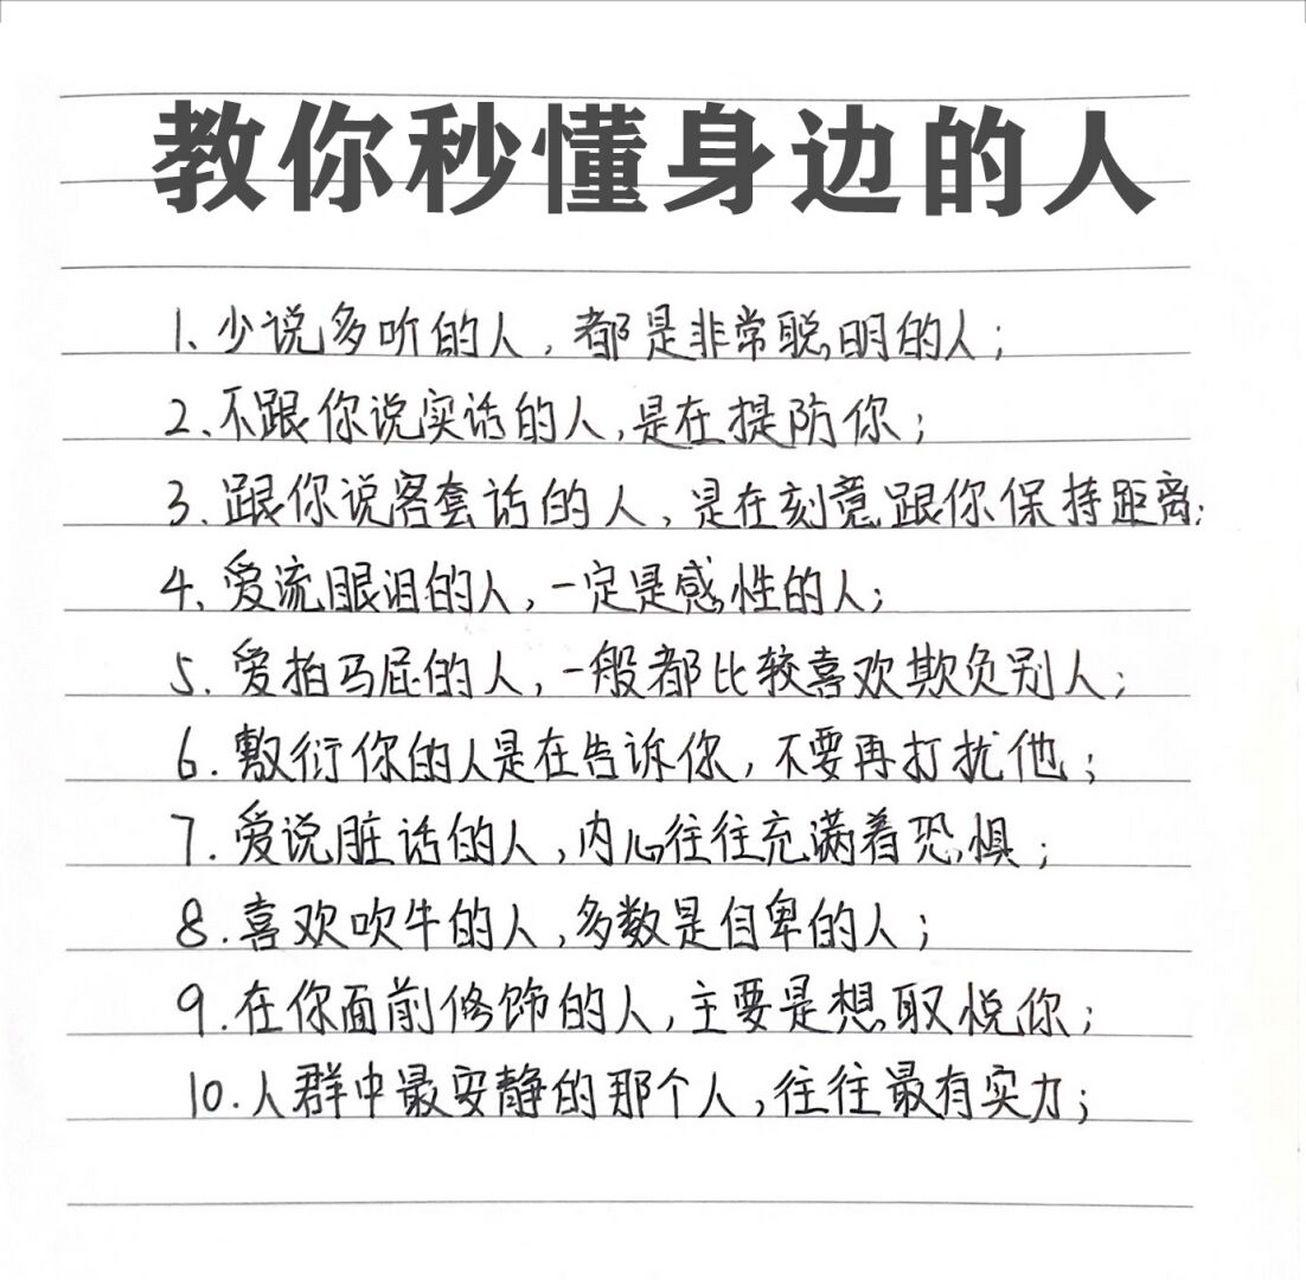 教你秒懂身边的人
1、少说多听的人，都是非常聪明的人；
2、不跟你说实话的人，是在提防你；
3、跟你说客套话的人，是在刻意跟你保持距离；
4、爱流眼泪的人，一定是感性的人；
5、爱拍马屁的人，一般都比较喜欢欺负别人；
6.敷衍你的人是在告诉你，不要再打扰他；
7.爱说脏话的人，内心往往充满着恐惧；
8.喜欢吹牛的人，多数是自卑的人；
9.在你面前修饰的人，主要是想取悦你；
10.人群中最安静的那个人，往往最有实力；